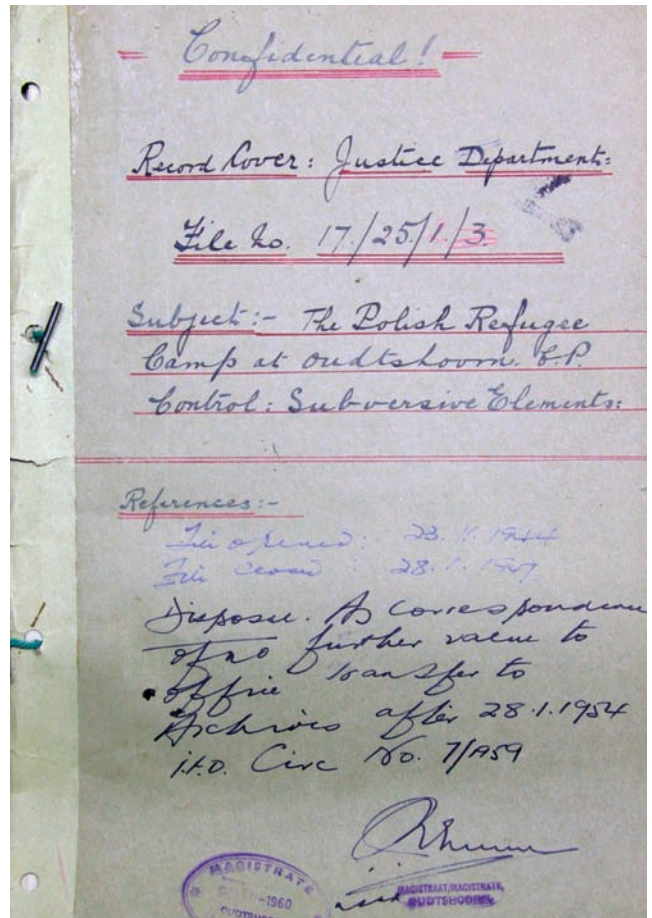 Confidential!
Record Cover: Justice Department:
File No. 17/25/1/3
Subject:- The Polish Refugee
Camp at Oudtshoorn. C.P.
Control: Subversive Elements:
References:-
File opened: 23.11.1944
File closed: 28.1.
Dispose. As correspondence
of no further value to
office transfer to
Archives after 28.1.1954
i.t.o. Circ No. 7/1959
MAGISTRATE
-1960
OUDTSHOORN
MAGISTRAAT/MAGISTRATE,
OUDTSHOORN